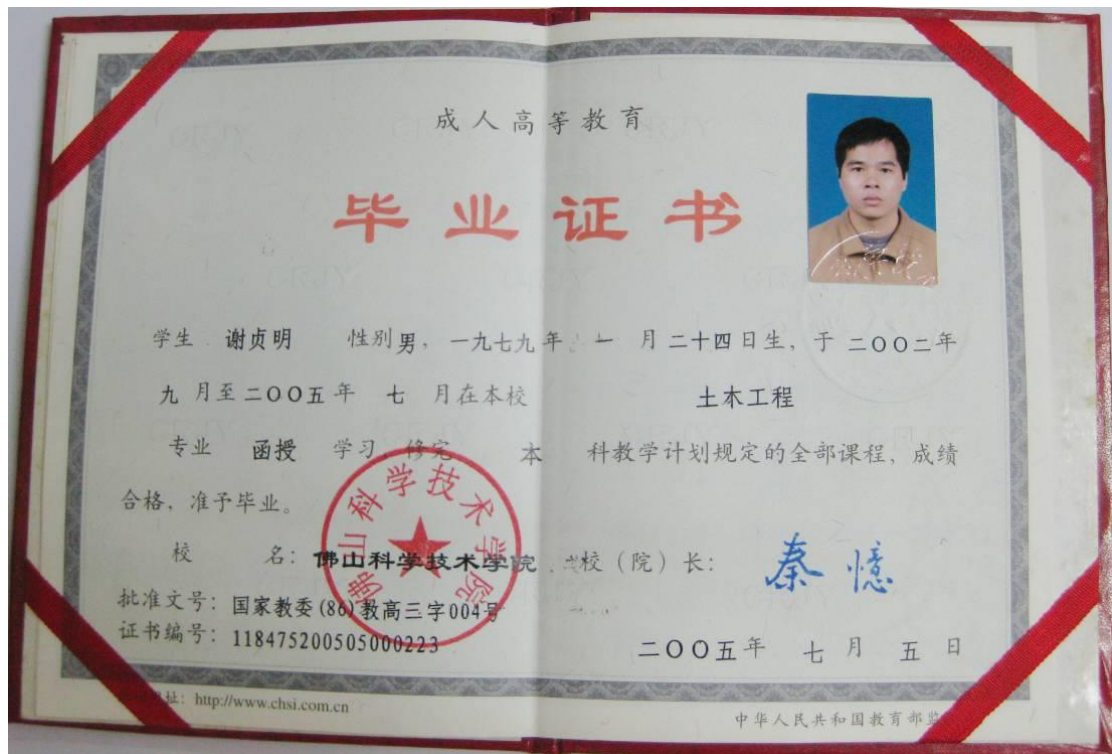 成人高等教育
毕业证书
学生 谢贞明 性别男, 一九七九年 一 月二十四日生, 于二〇〇二年
九 月至二〇〇五年 七 月在本校 土木工程
专业 函授 学习, 修完 本 科教学计划规定的全部课程, 成绩
合格, 准予毕业。
校 名: 佛山科学技术学院 校(院)长: 秦憶
批准文号: 国家教委(86)教高三字004号
证书编号: 118475200505000223
二〇〇五年 七 月 五 日
址: http://www.chsi.com.cn
中华人民共和国教育部监
佛山科学技术学院